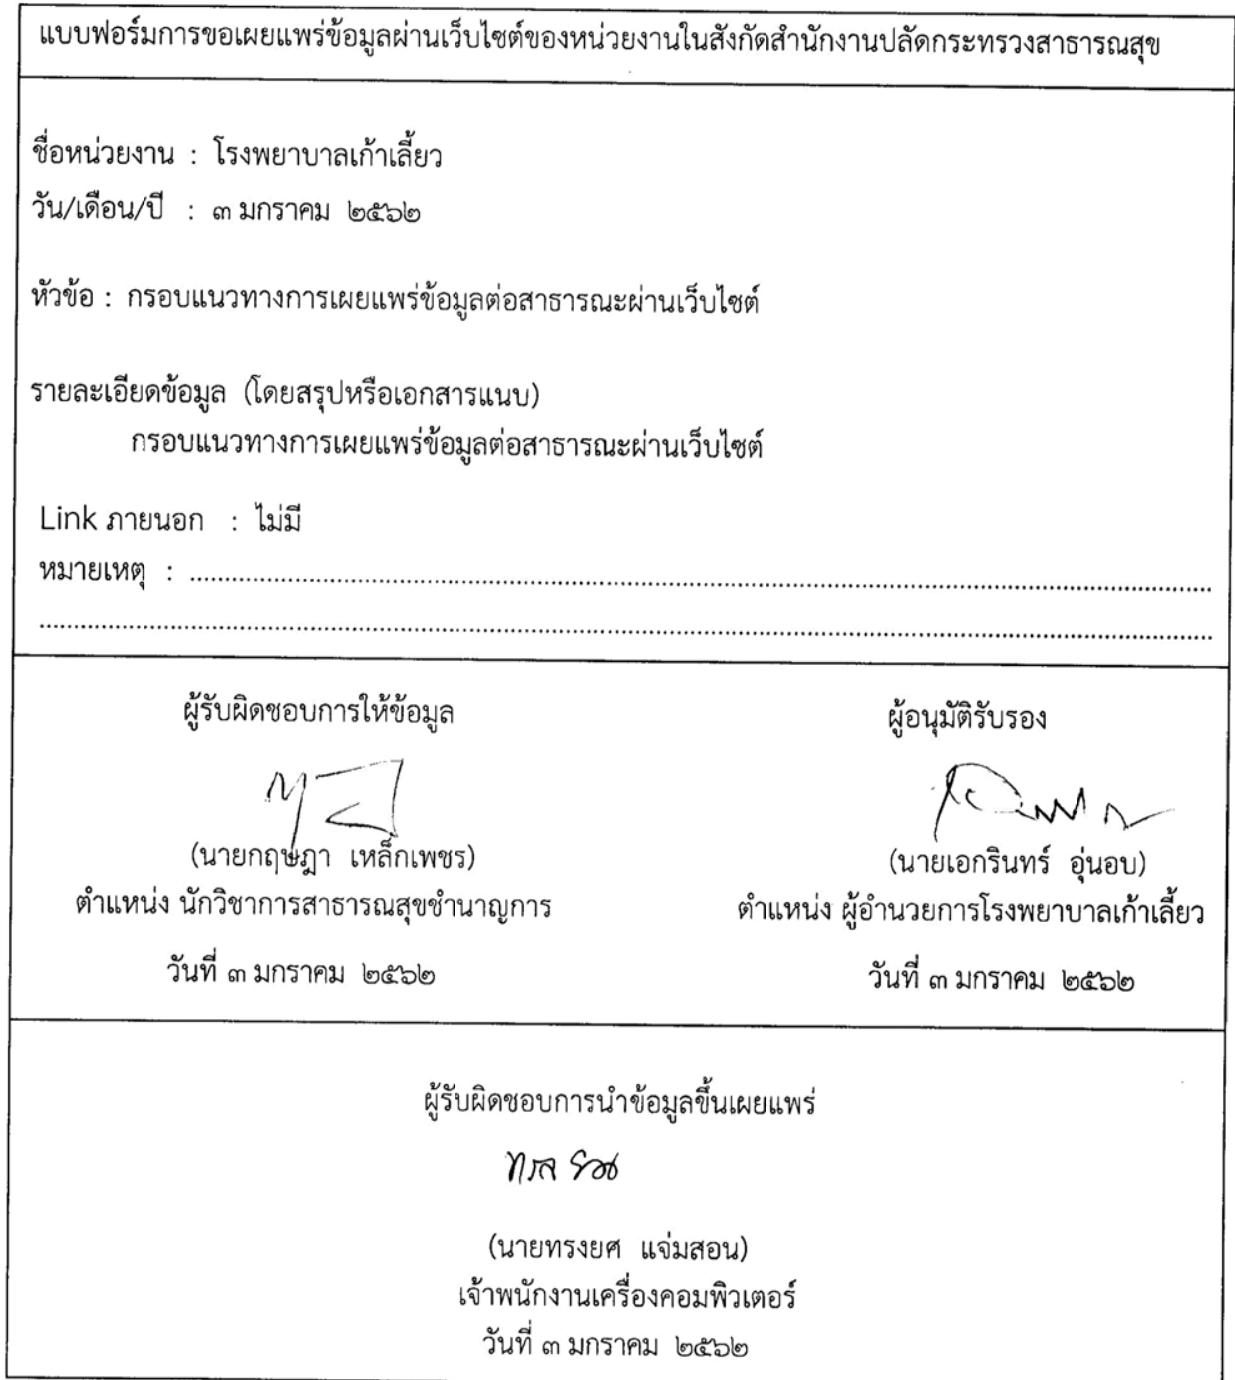 แบบฟอร์มการขอเผยแพร่ข้อมูลผ่านเว็บไซต์ของหน่วยงานในสังกัดสำนักงานปลัดกระทรวงสาธารณสุข
ชื่อหน่วยงาน : โรงพยาบาลเก้าเลี้ยว
วัน/เดือน/ปี : ๓ มกราคม ๒๕๖๒
หัวข้อ : กรอบแนวทางการเผยแพร่ข้อมูลต่อสาธารณะผ่านเว็บไซต์
รายละเอียดข้อมูล (โดยสรุปหรือเอกสารแนบ)
กรอบแนวทางการเผยแพร่ข้อมูลต่อสาธารณะผ่านเว็บไซต์
Link ภายนอก : ไม่มี
หมายเหตุ : ........................................................................
........................................................................
ผู้รับผิดชอบการให้ข้อมูล
(นายกฤษฎา เหล็กเพชร)
ตำแหน่ง นักวิชาการสาธารณสุขชำนาญการ
วันที่ ๓ มกราคม ๒๕๖๒
ผู้อนุมัติรับรอง
(นายเอกรินทร์ อุ่นอบ)
ตำแหน่ง ผู้อำนวยการโรงพยาบาลเก้าเลี้ยว
วันที่ ๓ มกราคม ๒๕๖๒
ผู้รับผิดชอบการนำข้อมูลขึ้นเผยแพร่
(นายทรงยศ แจ่มสอน)
เจ้าพนักงานเครื่องคอมพิวเตอร์
วันที่ ๓ มกราคม ๒๕๖๒